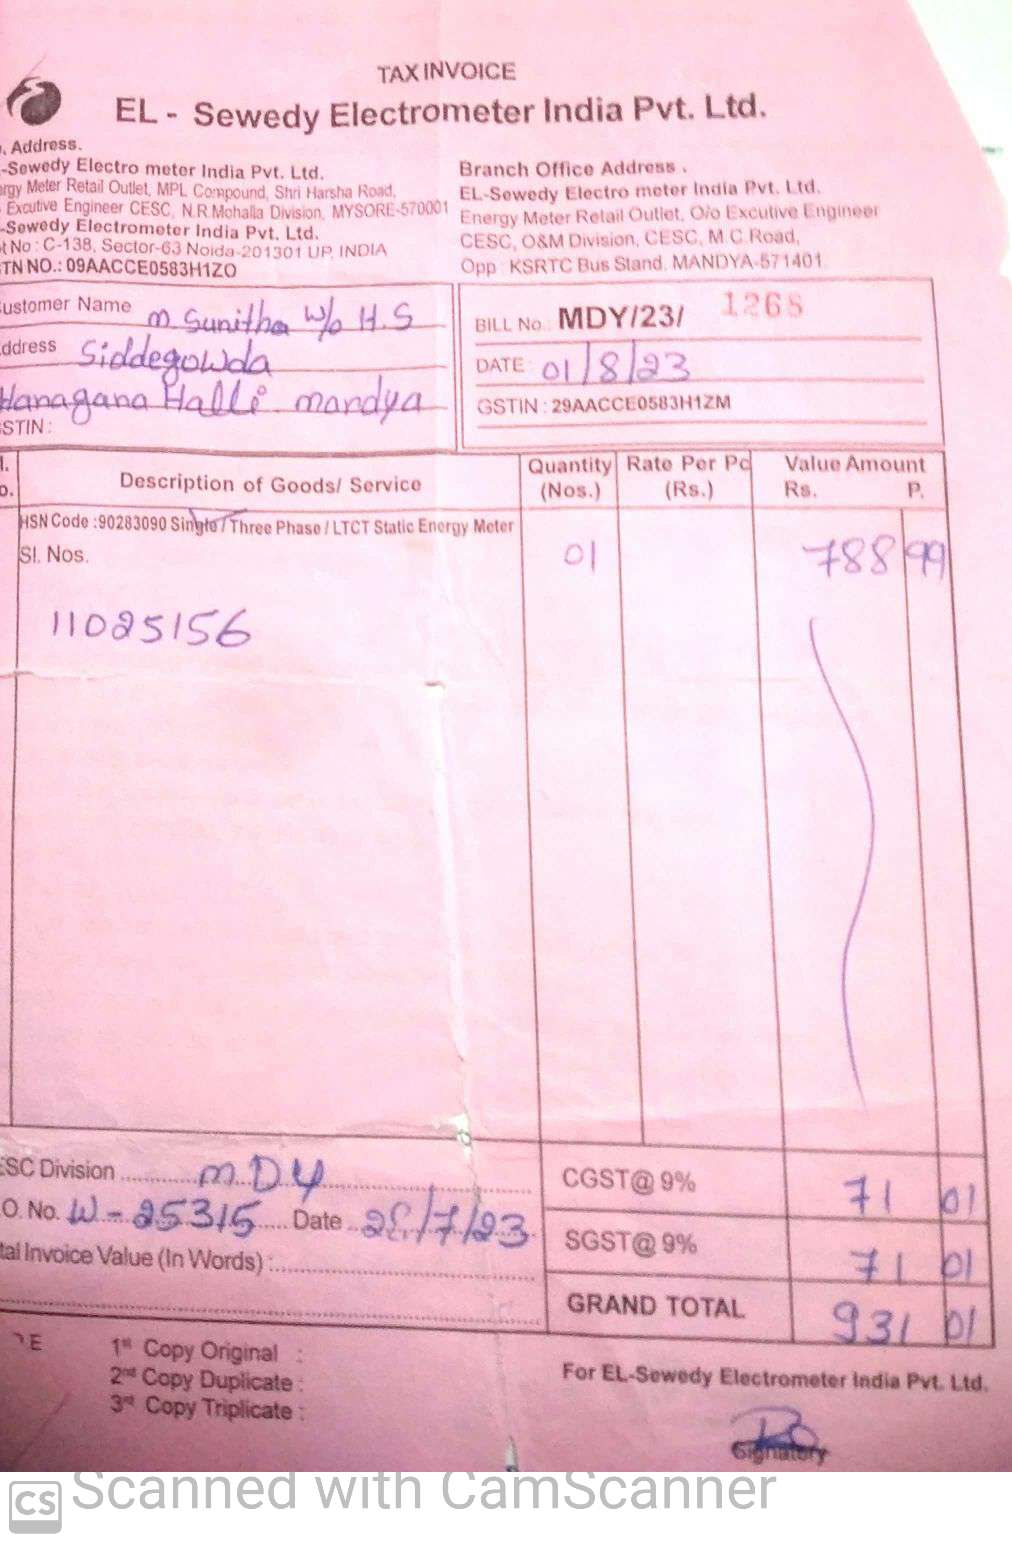 TAX INVOICE
EL - Sewedy Electrometer India Pvt. Ltd.
. Address.
-Sewedy Electro meter India Pvt. Ltd.
rgy Meter Retail Outlet, MPL Compound, Shri Harsha Road,
Excutive Engineer CESC, N.R.Mohalla Division, MYSORE-570001
-Sewedy Electrometer India Pvt. Ltd.
t No : C-138, Sector-63 Noida-201301 UP, INDIA
TN NO.: 09AACCE0583H1ZO
Branch Office Address .
EL-Sewedy Electro meter India Pvt. Ltd.
Energy Meter Retail Outlet, O/o Excutive Engineer
CESC, O&M Division, CESC, M.C.Road,
Opp : KSRTC Bus Stand. MANDYA-571401
ustomer Name m. Sunitha W/o H.S
ddress Siddegowda
Hanagana Halli mandya
STIN :
BILL No. MDY/23/ 1268
DATE : 01/8/23
GSTIN : 29AACCE0583H1ZM
l.
o.
Description of Goods/ Service
Quantity (Nos.)
Rate Per Pc (Rs.)
Value Amount
Rs. P.
HSN Code :90283090 Single / Three Phase / LTCT Static Energy Meter
Sl. Nos.
01 788 99
11025156
ESC Division ............ m.D.y
O. No. W-25315 Date 28/7/23
tal Invoice Value (In Words) :
CGST@ 9% 71 01
SGST@ 9% 71 01
GRAND TOTAL 931 01
E
1st Copy Original :
2nd Copy Duplicate :
3rd Copy Triplicate :
For EL-Sewedy Electrometer India Pvt. Ltd.
Signatory
CS Scanned with CamScanner